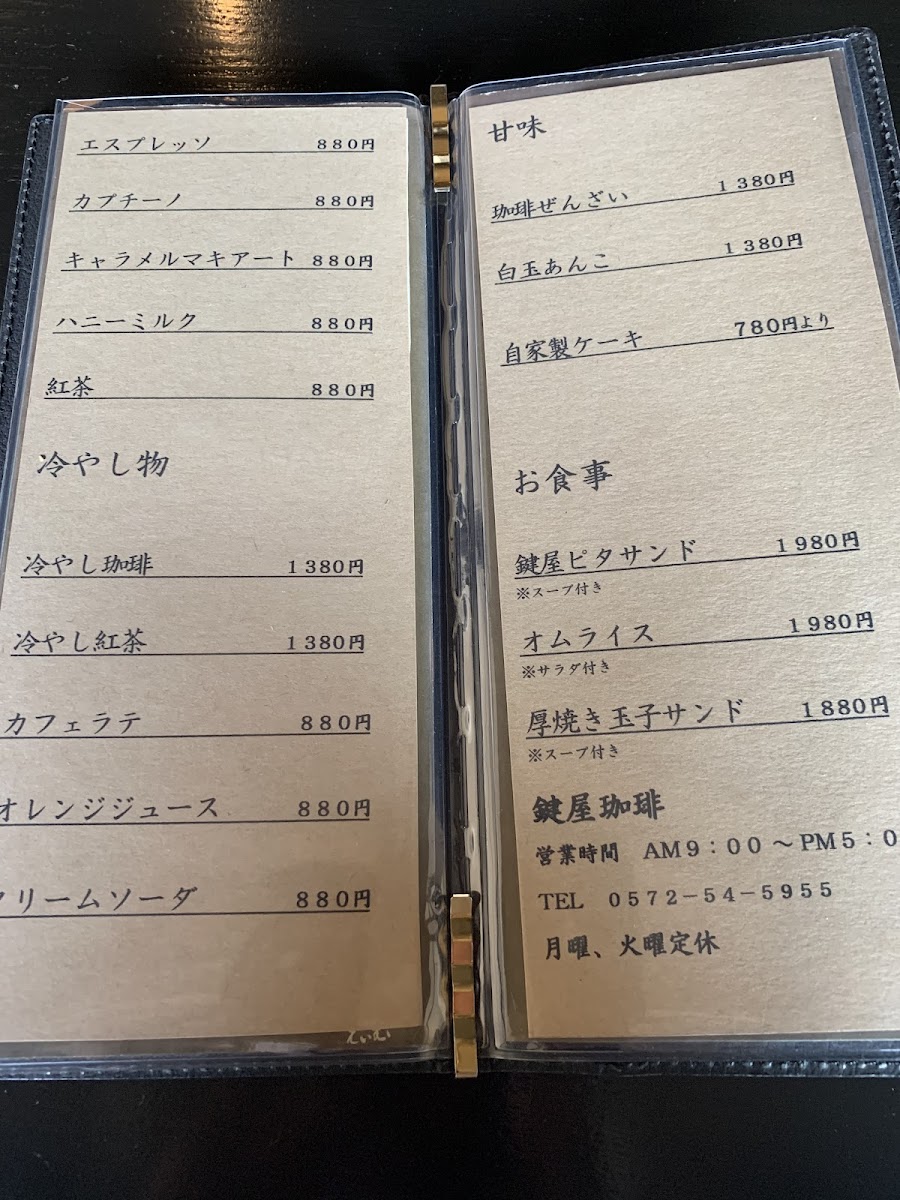 エスプレッソ 880円
カプチーノ 880円
キャラメルマキアート 880円
ハニーミルク 880円
紅茶 880円
冷やし物
冷やし珈琲 1380円
冷やし紅茶 1380円
カフェラテ 880円
オレンジジュース 880円
クリームソーダ 880円
えいむ
甘味
珈琲ぜんざい 1380円
白玉あんこ 1380円
自家製ケーキ 780円より
お食事
鍵屋ピタサンド 1980円
※スープ付き
オムライス 1980円
※サラダ付き
厚焼き玉子サンド 1880円
※スープ付き
鍵屋珈琲
営業時間 AM9:00～PM5:0
TEL 0572-54-5955
月曜、火曜定休